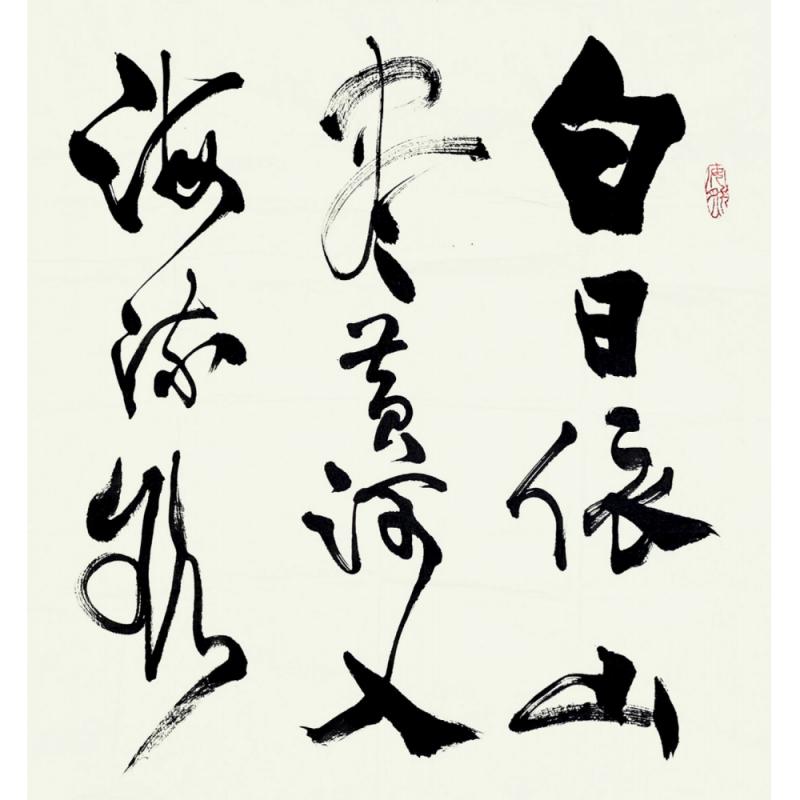 白日依山
尽黄河入
海流欲